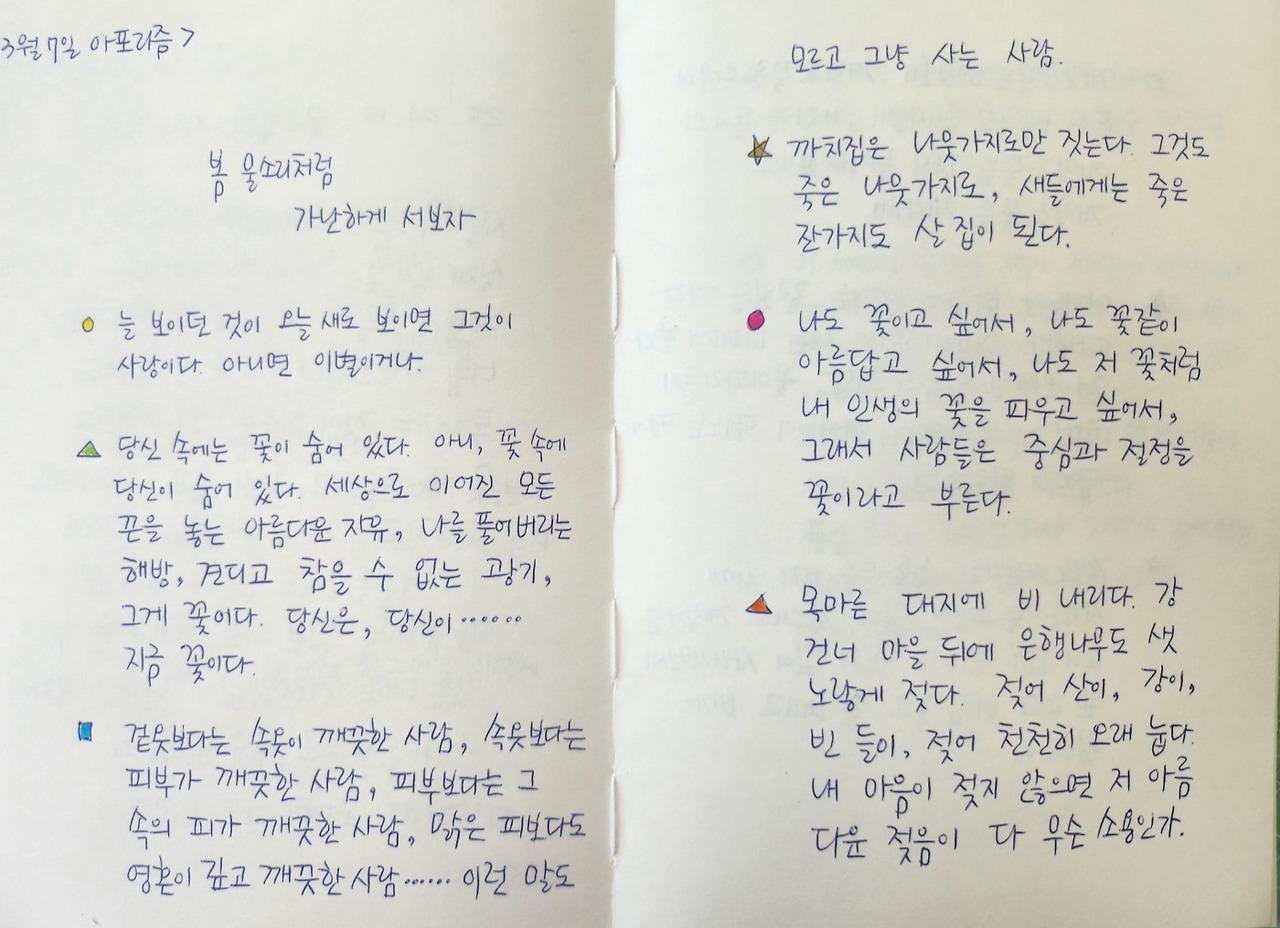 3월 7일 아포리즘 >
봄 물소리처럼
가난하게 서보자
늘 보이던 것이 오늘 새로 보이면 그것이
사랑이다. 아니면 이별이거나.
당신 속에는 꽃이 숨어 있다. 아니, 꽃 속에
당신이 숨어 있다. 세상으로 이어진 모든
끈을 놓는 아름다운 자유, 나를 풀어버리는
해방, 견디고 참을 수 없는 광기,
그게 꽃이다. 당신은, 당신이……
지금 꽃이다.
겉옷보다는 속옷이 깨끗한 사람, 속옷보다는
피부가 깨끗한 사람, 피부보다는 그
속의 피가 깨끗한 사람, 맑은 피보다도
영혼이 깊고 깨끗한 사람…… 이런 말도
모르고 그냥 사는 사람.
까치집은 나뭇가지로만 짓는다. 그것도
죽은 나뭇가지로, 새들에게는 죽은
잔가지도 살 집이 된다.
나도 꽃이고 싶어서, 나도 꽃같이
아름답고 싶어서, 나도 저 꽃처럼
내 인생의 꽃을 피우고 싶어서,
그래서 사람들은 중심과 절정을
꽃이라고 부른다.
목마른 대지에 비 내리다. 강
건너 마을 뒤에 은행나무도 샛
노랗게 젖다. 젖어 산이, 강이,
빈 들이, 젖어 천천히 오래 눕다.
내 마음이 젖지 않으면 저 아름
다운 젖음이 다 무슨 소용인가.